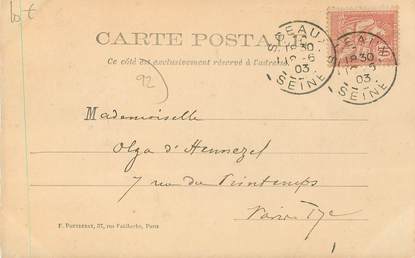 lot
CARTE POSTALE
Ce côté est exclusivement réservé à l'adresse.
92
SCEAUX
18 30
10 - 6
03
SEINE
SCEAUX
18 30
03
SEINE
Mademoiselle
Olga d'Hennezel
7 rue du Printemps
Paris 17e
37, rue Faidherbe, Paris